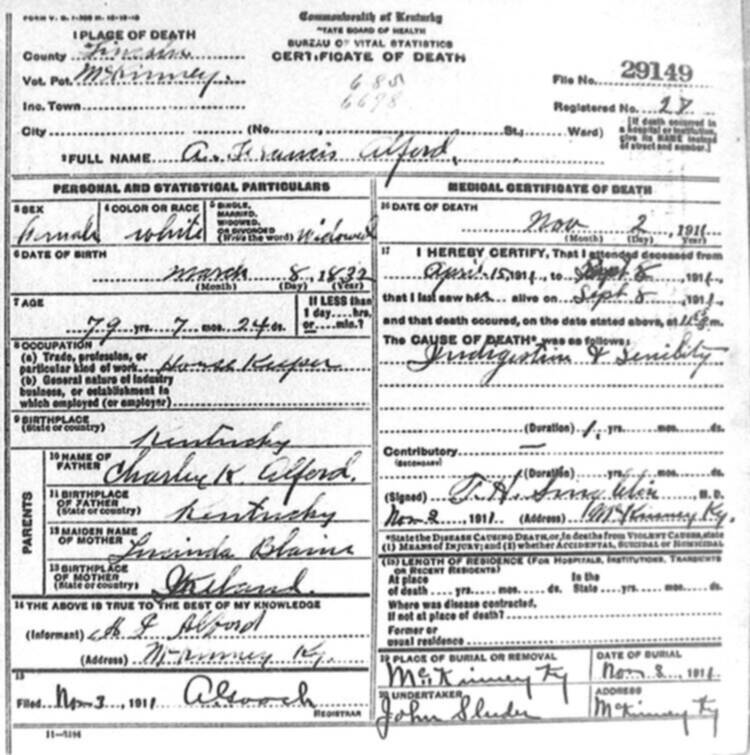 FORM V. S. 1-
Commonwealth of Kentucky
STATE BOARD OF HEALTH
BUREAU OF VITAL STATISTICS
CERTIFICATE OF DEATH
1 PLACE OF DEATH
County Lincoln
Vot. Pct. McKinney.
Inc. Town
City (No. St., Ward)
685
6698
File No. 29149
Registered No. 28
[If death occurred in a hospital or institution, give its NAME instead of street and number.]
2 FULL NAME A. Francis Alford,
PERSONAL AND STATISTICAL PARTICULARS
3 SEX
female
4 COLOR OR RACE
white
5 SINGLE, MARRIED, WIDOWED, OR DIVORCED (Write the word) Widowed
6 DATE OF BIRTH
March 8, 1832
(Month) (Day) (Year)
7 AGE
79 yrs. 7 mos. 24 ds.
If LESS than 1 day....hrs. or....min.?
8 OCCUPATION
(a) Trade, profession, or particular kind of work House Keeper
(b) General nature of industry business, or establishment in which employed (or employer)
9 BIRTHPLACE
(State or country) Kentucky
PARENTS
10 NAME OF FATHER Charley K. Alford.
11 BIRTHPLACE OF FATHER (State or country) Kentucky
12 MAIDEN NAME OF MOTHER Lucinda Blaine
13 BIRTHPLACE OF MOTHER (State or country) Ireland.
14 THE ABOVE IS TRUE TO THE BEST OF MY KNOWLEDGE
(Informant) Alford
(Address) McKinney Ky.
15
Filed Nov 3, 1911
REGISTRAR
MEDICAL CERTIFICATE OF DEATH
16 DATE OF DEATH
Nov 2, 1911
(Month) (Day) (Year)
17 I HEREBY CERTIFY, That I attended deceased from
April 15, 1911, to Sept 8, 1911,
that I last saw her alive on Sept 8, 1911,
and that death occured, on the date stated above, at m.
The CAUSE OF DEATH* was as follows:
Indigestion & Senility
(Duration) 1 yrs. mos. ds.
Contributory —
(SECONDARY)
(Duration) yrs. mos. ds.
(Signed) M. D.
Nov 2, 1911. (Address) McKinney Ky.
*State the DISEASE CAUSING DEATH, or, in deaths from VIOLENT CAUSES, state (1) MEANS OF INJURY; and (2) whether ACCIDENTAL, SUICIDAL or HOMICIDAL
18 LENGTH OF RESIDENCE (FOR HOSPITALS, INSTITUTIONS, TRANSIENTS OR RECENT RESIDENTS)
At place of death yrs. mos. ds. In the State yrs. mos. ds.
Where was disease contracted, if not at place of death?
Former or usual residence
19 PLACE OF BURIAL OR REMOVAL
McKinney Ky
DATE OF BURIAL
Nov 3, 1911
20 UNDERTAKER
John Sluder
ADDRESS
McKinney Ky